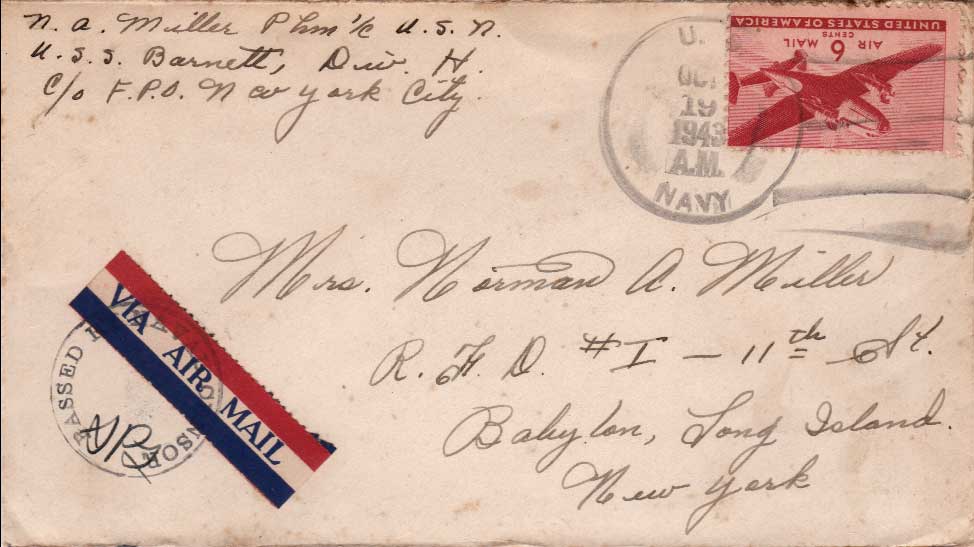 N. A. Miller Phm 1/c U.S.N.
U.S.S. Barnett, Div. H.
c/o F.P.O. New York City.
U.
OCT
19
1943
A.M.
NAVY
UNITED STATES OF AMERICA
6 CENTS
AIR MAIL
Mrs. Norman A. Miller
R.F.D. #1 - 11th St.
Babylon, Long Island.
New York
VIA AIR MAIL
PASSED